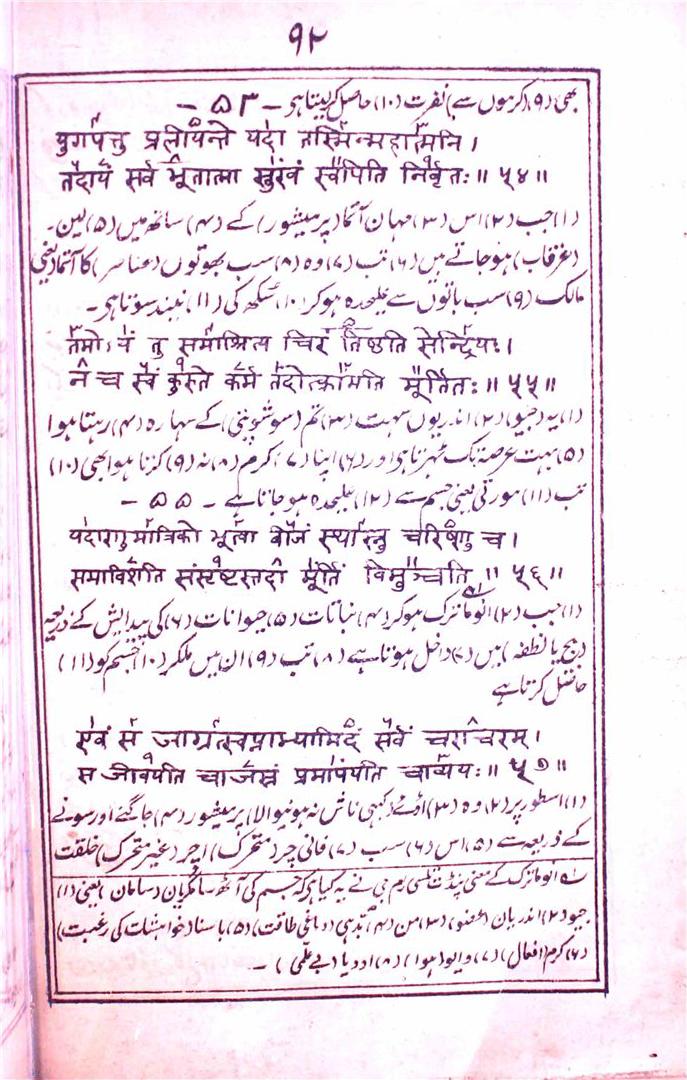 ९२
بھی (۹) (کرموں سے) نفرت (۱۰) حاصل کر لیتا ہی ۔ ۵۳ ۔
युगपत्तु प्रलीयन्ते यदा तस्मिन्महात्मनि ।
तदायं सर्व भूतात्मा सुखं स्वपिति निर्वृतः ॥ ५४ ॥
(۱) جب (۲) اس (۳) مہان آتما (پرمیشور) کے (۴) ساتھ میں (۵) لین ۔
(غرقاب) ہو جاتے ہیں (۶) تب (۷) وہ (۸) سب بھوتوں (عناصر) کا آتما (یعنی
مالک (۹) سب باتوں سے علیحدہ ہو کر (۱۰) سُکھ کی (۱۱) نیند سوتا ہی ۔
तमोऽयं तु समाश्रित्य चिरं तिष्ठति सेन्द्रियः ।
न च स्वं कुरुते कर्म तदोत्क्रामति मूर्तितः ॥ ५५ ॥
(۱) یہ (جیو) (۲) اندریوں سہت (۳) تم (سوشوپتی) کے سہارہ (۴) رہتا ہوا
(۵) بہت عرصہ تک ٹہرتا ہی اور (۶) اپنا (۷) کرم (۸) نہ (۹) کرتا ہوا بھی (۱۰)
تب (۱۱) مورتی یعنی جسم سے (۱۲) علیحدہ ہو جاتا ہے ۔ ۵۵ ۔
यदाणुमात्रिको भूत्वा बीजं स्थास्नु चरिष्णु च ।
समाविशति संसृष्टस्तदा मूर्तिं विमुञ्चति ॥ ५६ ॥
(۱) جب (۲) انوماترک ہو کر (۴) نباتات (۵) حیوانات (۶) کی پیدایش کے ذریعہ
(بیج یا نطفہ) میں (۷) داخل ہوتا ہے (۸) تب (۹) ان میں ملکر (۱۰) جسم کو (۱۱)
حاصل کرتا ہے
एवं स जाग्रत्स्वप्नाभ्यामिदं सर्वं चराचरम् ।
स जीवयति चाजस्रं प्रमापयति चाव्ययः ॥ ५७ ॥
(۱) اسطور پر (۲) وہ (۳) اوّے (کبھی ناش نہ ہونیوالا) پرمیشور (۴) جاگنے اور سونے
کے ذریعہ سے (۵) اس (۶) سب (۷) فانی چر (متحرک) اچر (غیر متحرک) خلقت
۱؎ انوماترک کے معنی پنڈت تلسی رام جی نے یہ کیا ہی کہ جسم کی آٹھ سامگریان (سامان) یعنی (۱)
جیو (۲) اندریان (عضو) (۳) من (۴) بُدہی (دماغی طاقت) (۵) باسنا (خواہشات کی رغبت)
(۶) کرم (افعال) (۷) وایو (ہوا) (۸) اودیا (بے علمی) ۔